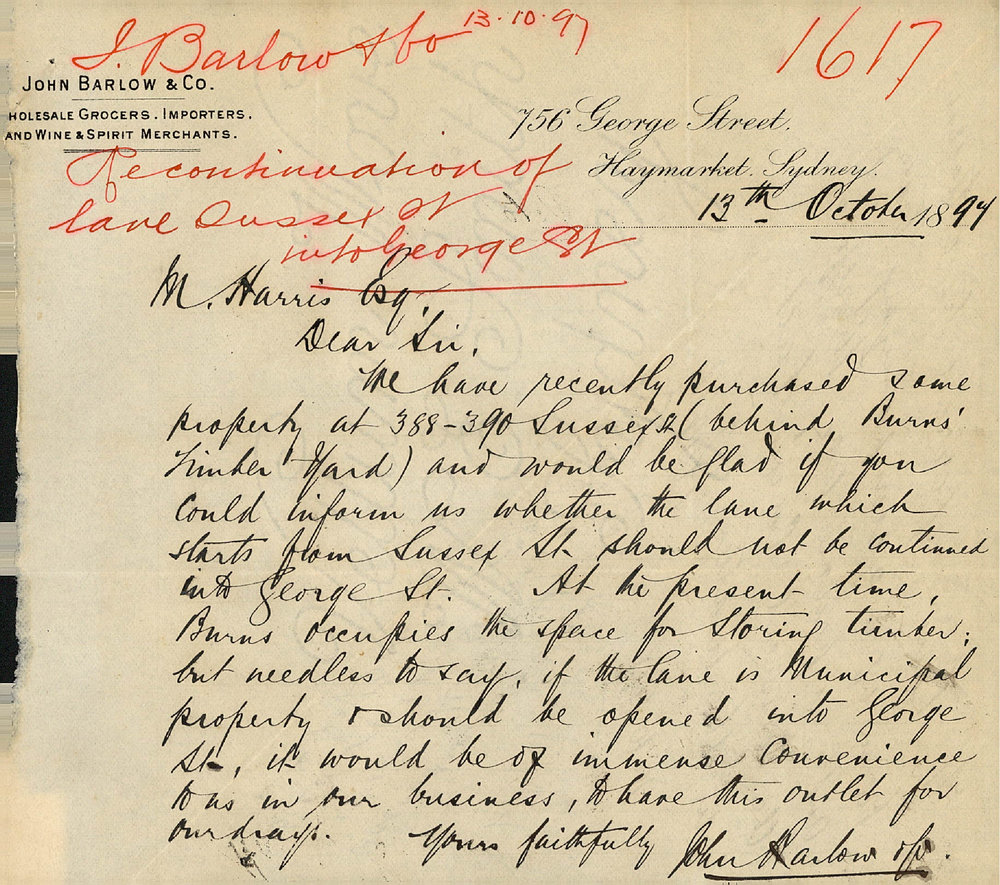 J. Barlow & Co 13.10.97
1617
JOHN BARLOW & CO.
HOLESALE GROCERS, IMPORTERS,
AND WINE & SPIRIT MERCHANTS.
756 George Street,
Haymarket, Sydney.
13th October 1897
Re continuation of
lane Sussex St
into George St
M. Harris Esq.
Dear Sir,
We have recently purchased some
property at 388-390 Sussex St (behind Burns'
Timber Yard) and would be glad if you
could inform us whether the lane which
starts from Sussex St should not be continued
into George St. At the present time,
Burns occupies the space for storing timber;
but needless to say, if the lane is Municipal
property & should be opened into George
St, it would be of immense convenience
to us in our business, to have this outlet for
our drays.
Yours faithfully John Barlow